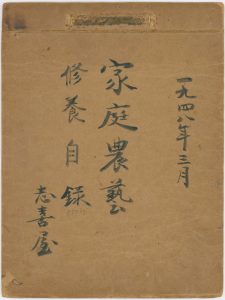 一九四八年三月
家庭農藝
修養自録
志喜屋